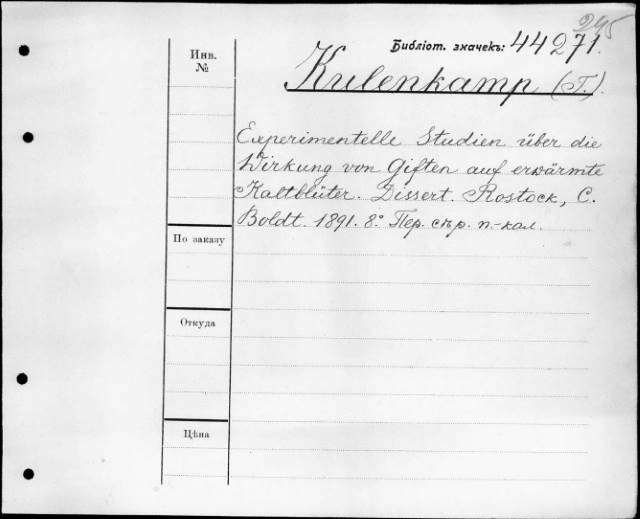 295
Библіот. значекъ: 44271.
Инв.
№
Kulenkamp (T.).
Experimentelle Studien über die
Wirkung von Giften auf erwärmte
Kaltblüter. Dissert. Rostock, C.
Boldt. 1891. 8° Пер. сѣр. п.-кал.
По заказу
Откуда
Цѣна